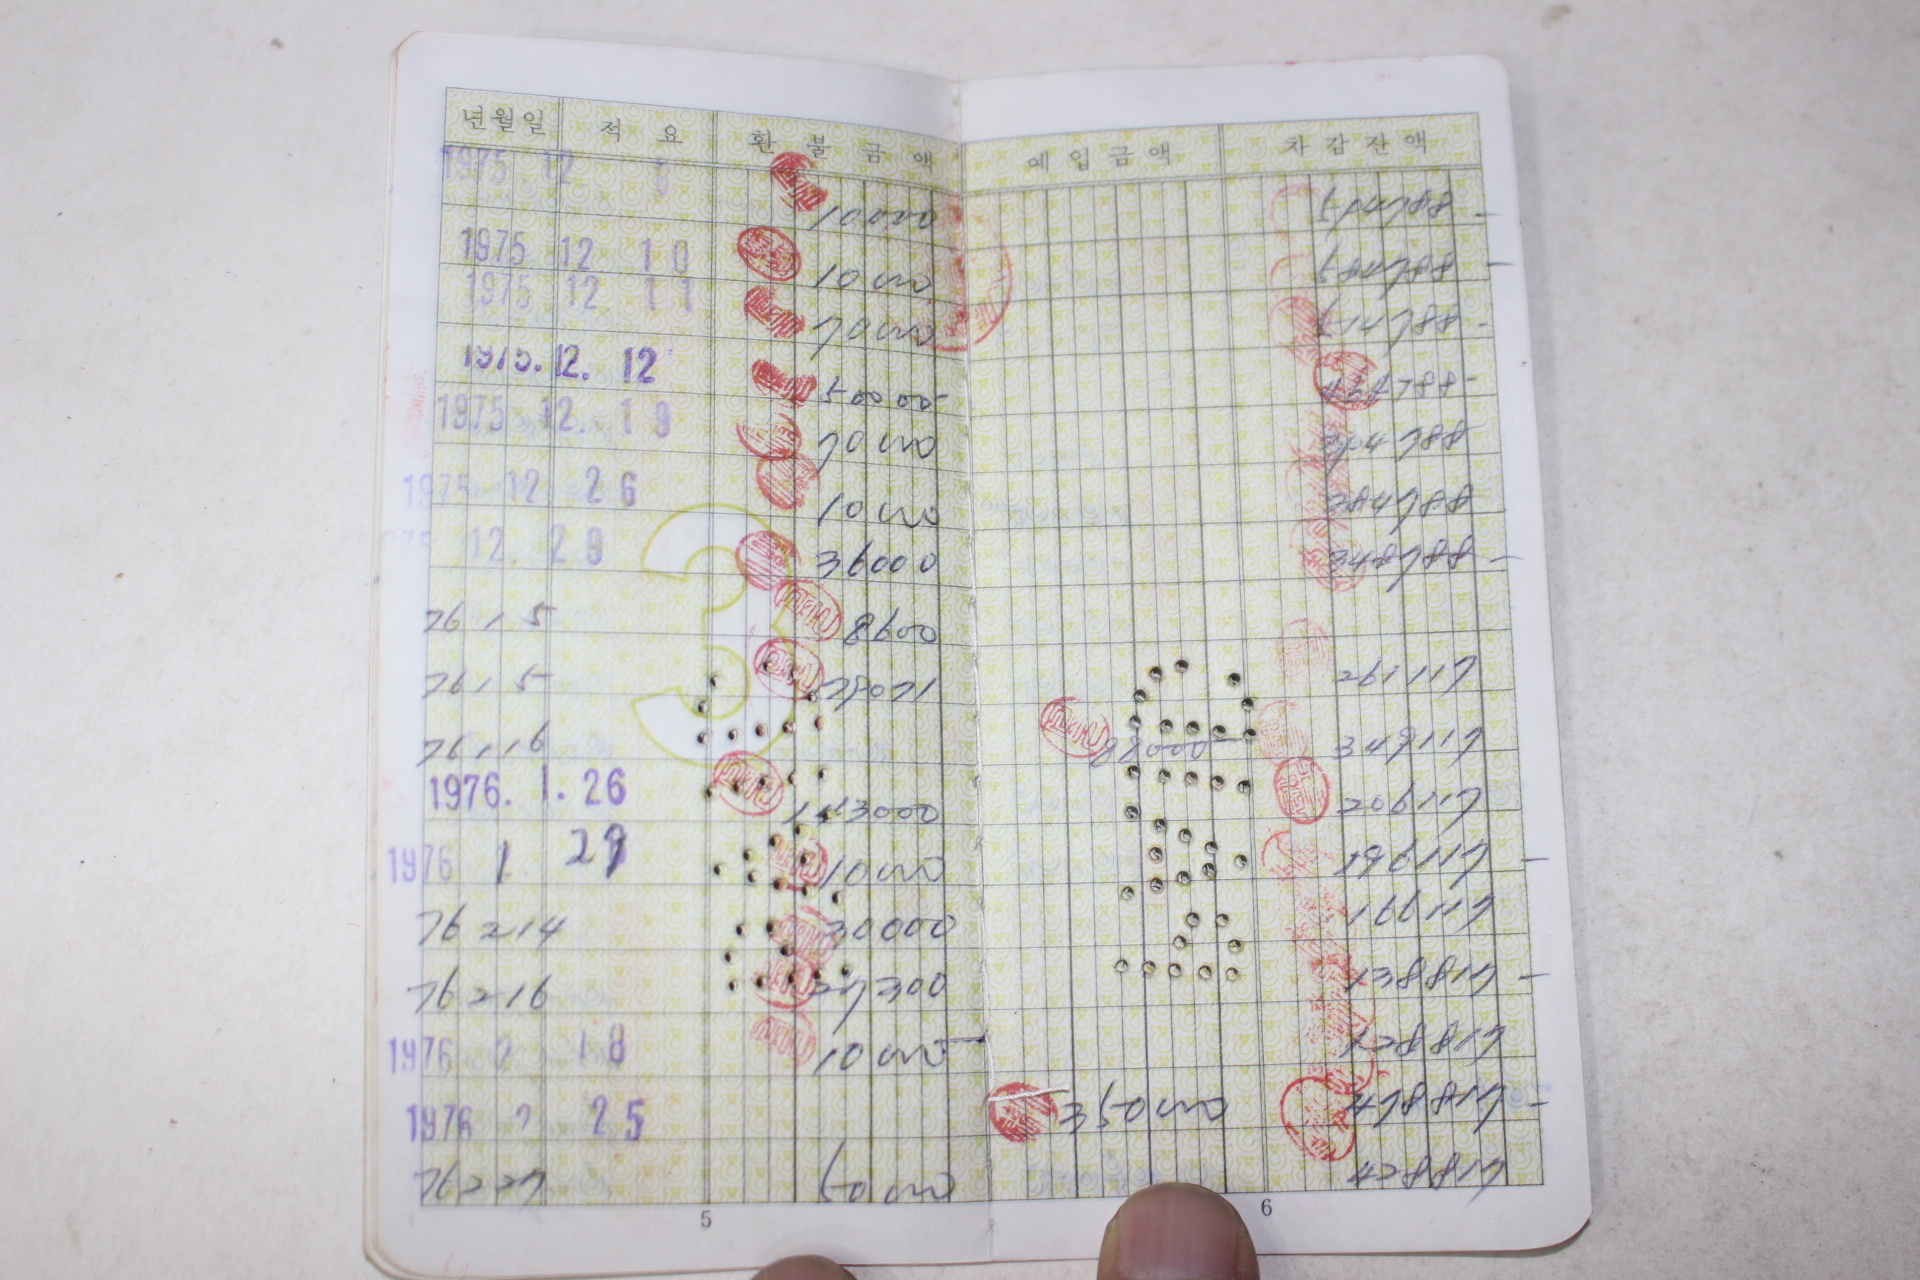 년월일 적 요 환 불 금 액 예 입 금 액 차 감 잔 액
1975 12 1 10000 594788 -
1975 12 10 10000 584788 -
1975 12 11 70000 514788 -
1975.12. 12 50000 464788 -
1975 12. 19 70000 394788
1975 12 26 10000 384788
12. 29 36000 348788 -
76 1 5 8600
76 1 5 79071 261117
76 1 16 88000 349117
1976. 1. 26 143000 206117
1976 1 29 10000 196117 -
76 2 14 30000 166117
76 2 16 27300 138817 -
1976 2 18 10000 128817
1976 2 25 350000 478817 -
76 2 27 50000 428817
5 6